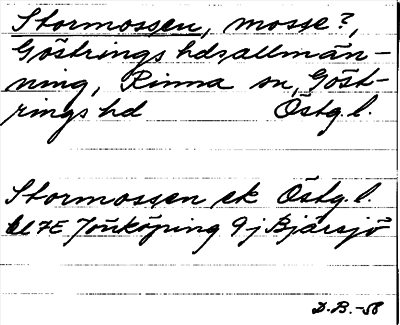 Stormossen, mosse?,
Göstrings hdsallmän-
ning, Rinna sn, Göst-
rings hd Östg. l.
Stormossen ek Östg. l.
bl 7E Jönköping 9j Bjärsjö
D.B.-58